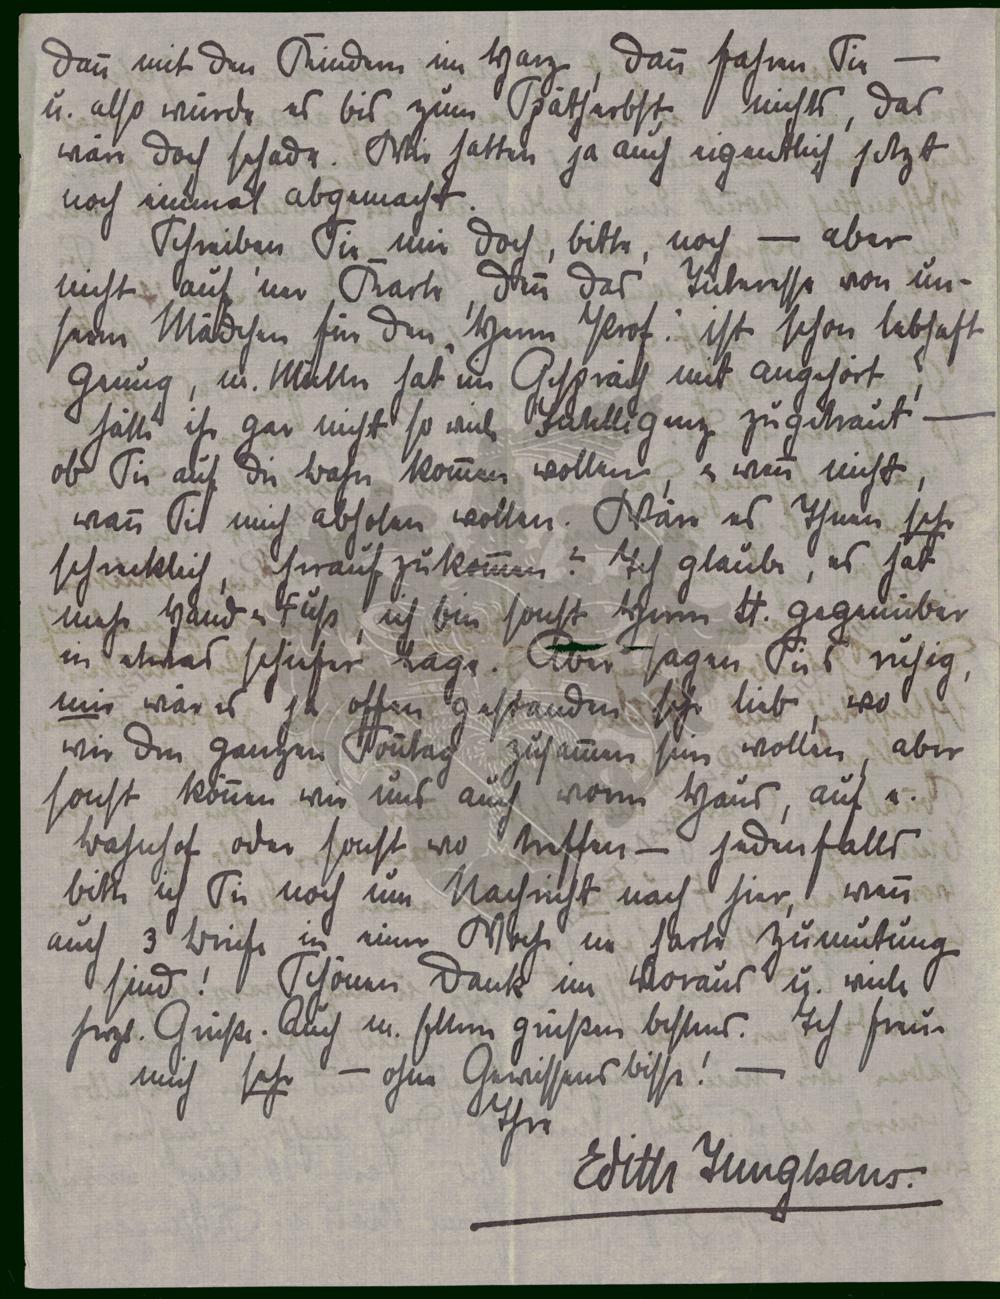 dann mit den Kindern im Harz, dann fahren Sie —
u. also würde es bis zum Spätherbst nichts, das
wäre doch schade. Wir hatten ja auch eigentlich jetzt
noch einmal abgemacht.
Schreiben Sie mir doch, bitte, noch — aber
nicht auf 'ner Karte, denn das Interesse von un-
serm Mädchen für den „Herrn Prof." ist schon lebhaft
genug, m. Mutter hat ein Gespräch mit angehört,
hätte ihr gar nicht so viel Intelligenz zugetraut —
ob Sie auf die Bahn kommen wollen, u. wenn nicht,
wann Sie mich abholen wollen. Wäre es Ihnen sehr
schrecklich, heraufzukommen? Ich glaube, es hat
mehr Hand u. Fuß, ich bin sonst Herrn H. gegenüber
in etwas schiefer Lage. Aber sagen Sie's ruhig,
mir wär es ja offen gestanden sehr lieb, wo
wir den ganzen Sonntag zusammen sein wollen, aber
sonst können wir uns auch vorm Haus, auf e.
Bahnhof oder sonst wo treffen — jedenfalls
bitte ich Sie noch um Nachricht nach hier, wenn
auch 3 Briefe in einer Woche ne harte Zumutung
sind! Schönen Dank im Voraus u. viele
herzl. Grüße. Auch m. Eltern grüßen bestens. Ich freue
mich sehr — ohne Gewissensbisse! —
Ihre
Edith Junghans.